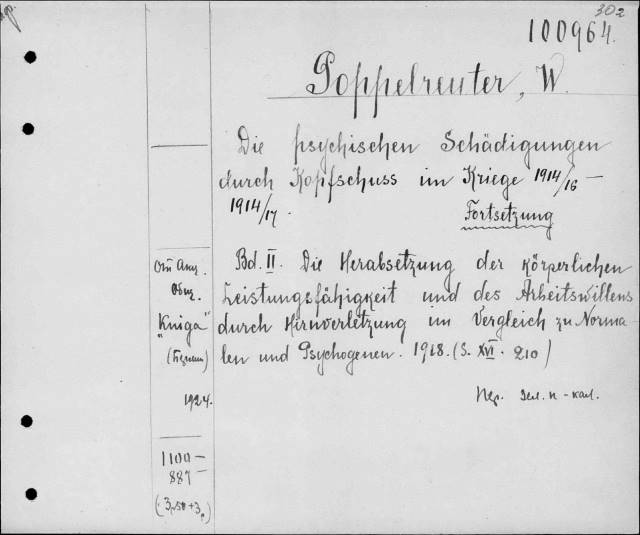 302
100964.
Poppelreuter, W.
Die psychischen Schädigungen
durch Kopfschuss im Kriege 1914/16 –
1914/17.
Fortsetzung
Bd. II. Die Herabsetzung der körperlichen
Leistungsfähigkeit und des Arbeitswillens
durch Hirnverletzung im Vergleich zu Norma-
len und Psychogenen. 1918. (S. XVI. 210)
"Kniga"
1924.
1100 –
887 –
(3,50+3,)